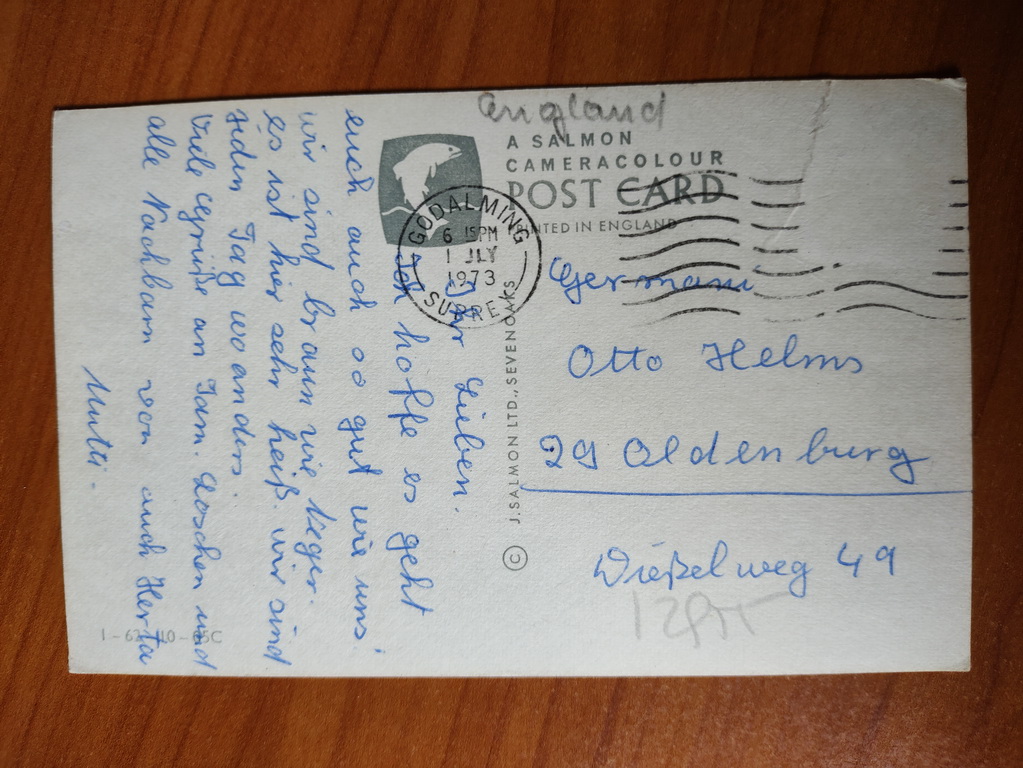 England
A SALMON
CAMERACOLOUR
POST CARD
PRINTED IN ENGLAND
GODALMING
6 15PM
1 JLY
1973
SURREY
Ihr Lieben.
Ich hoffe es geht
euch auch so gut wie uns!
wir sind braun wie Neger.
es ist hier sehr heiß. wir sind
jeden Tag woanders.
Viele Grüße an Fam. Loschen und
alle Nachbarn von auch Herta
Mutti.
© J. SALMON LTD., SEVENOAKS
Germani
Otto Helms
29 Oldenburg
Dießelweg 49